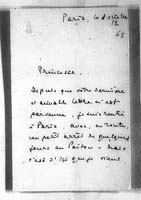 Paris, le 4 octobre
12
63
Princesse.
Depuis que votre dernière
et aimable lettre m'est
parvenue, je suis rentré
à Paris avec, en route,
un petit arrêt de quelques
jours en Poitou. Mais
c'est d'ici que je viens